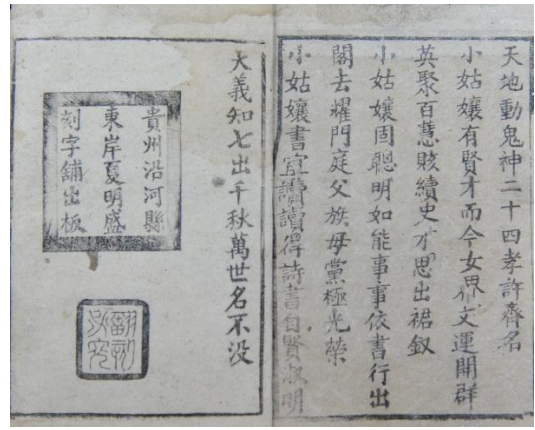 天地動鬼神二十四孝許齊名
小姑孃有賢才而今女界文運開群
英聚百慧賅續史才思出裙釵
小姑孃固聰明如能事事依書行出
閣去耀門庭父族母黨極光榮
小姑孃書宜讀讀得詩書自賢淑明
大義知七出千秋萬世名不没
貴州沿河縣
東岸夏明盛
刻字鋪出板
翻刻
必究